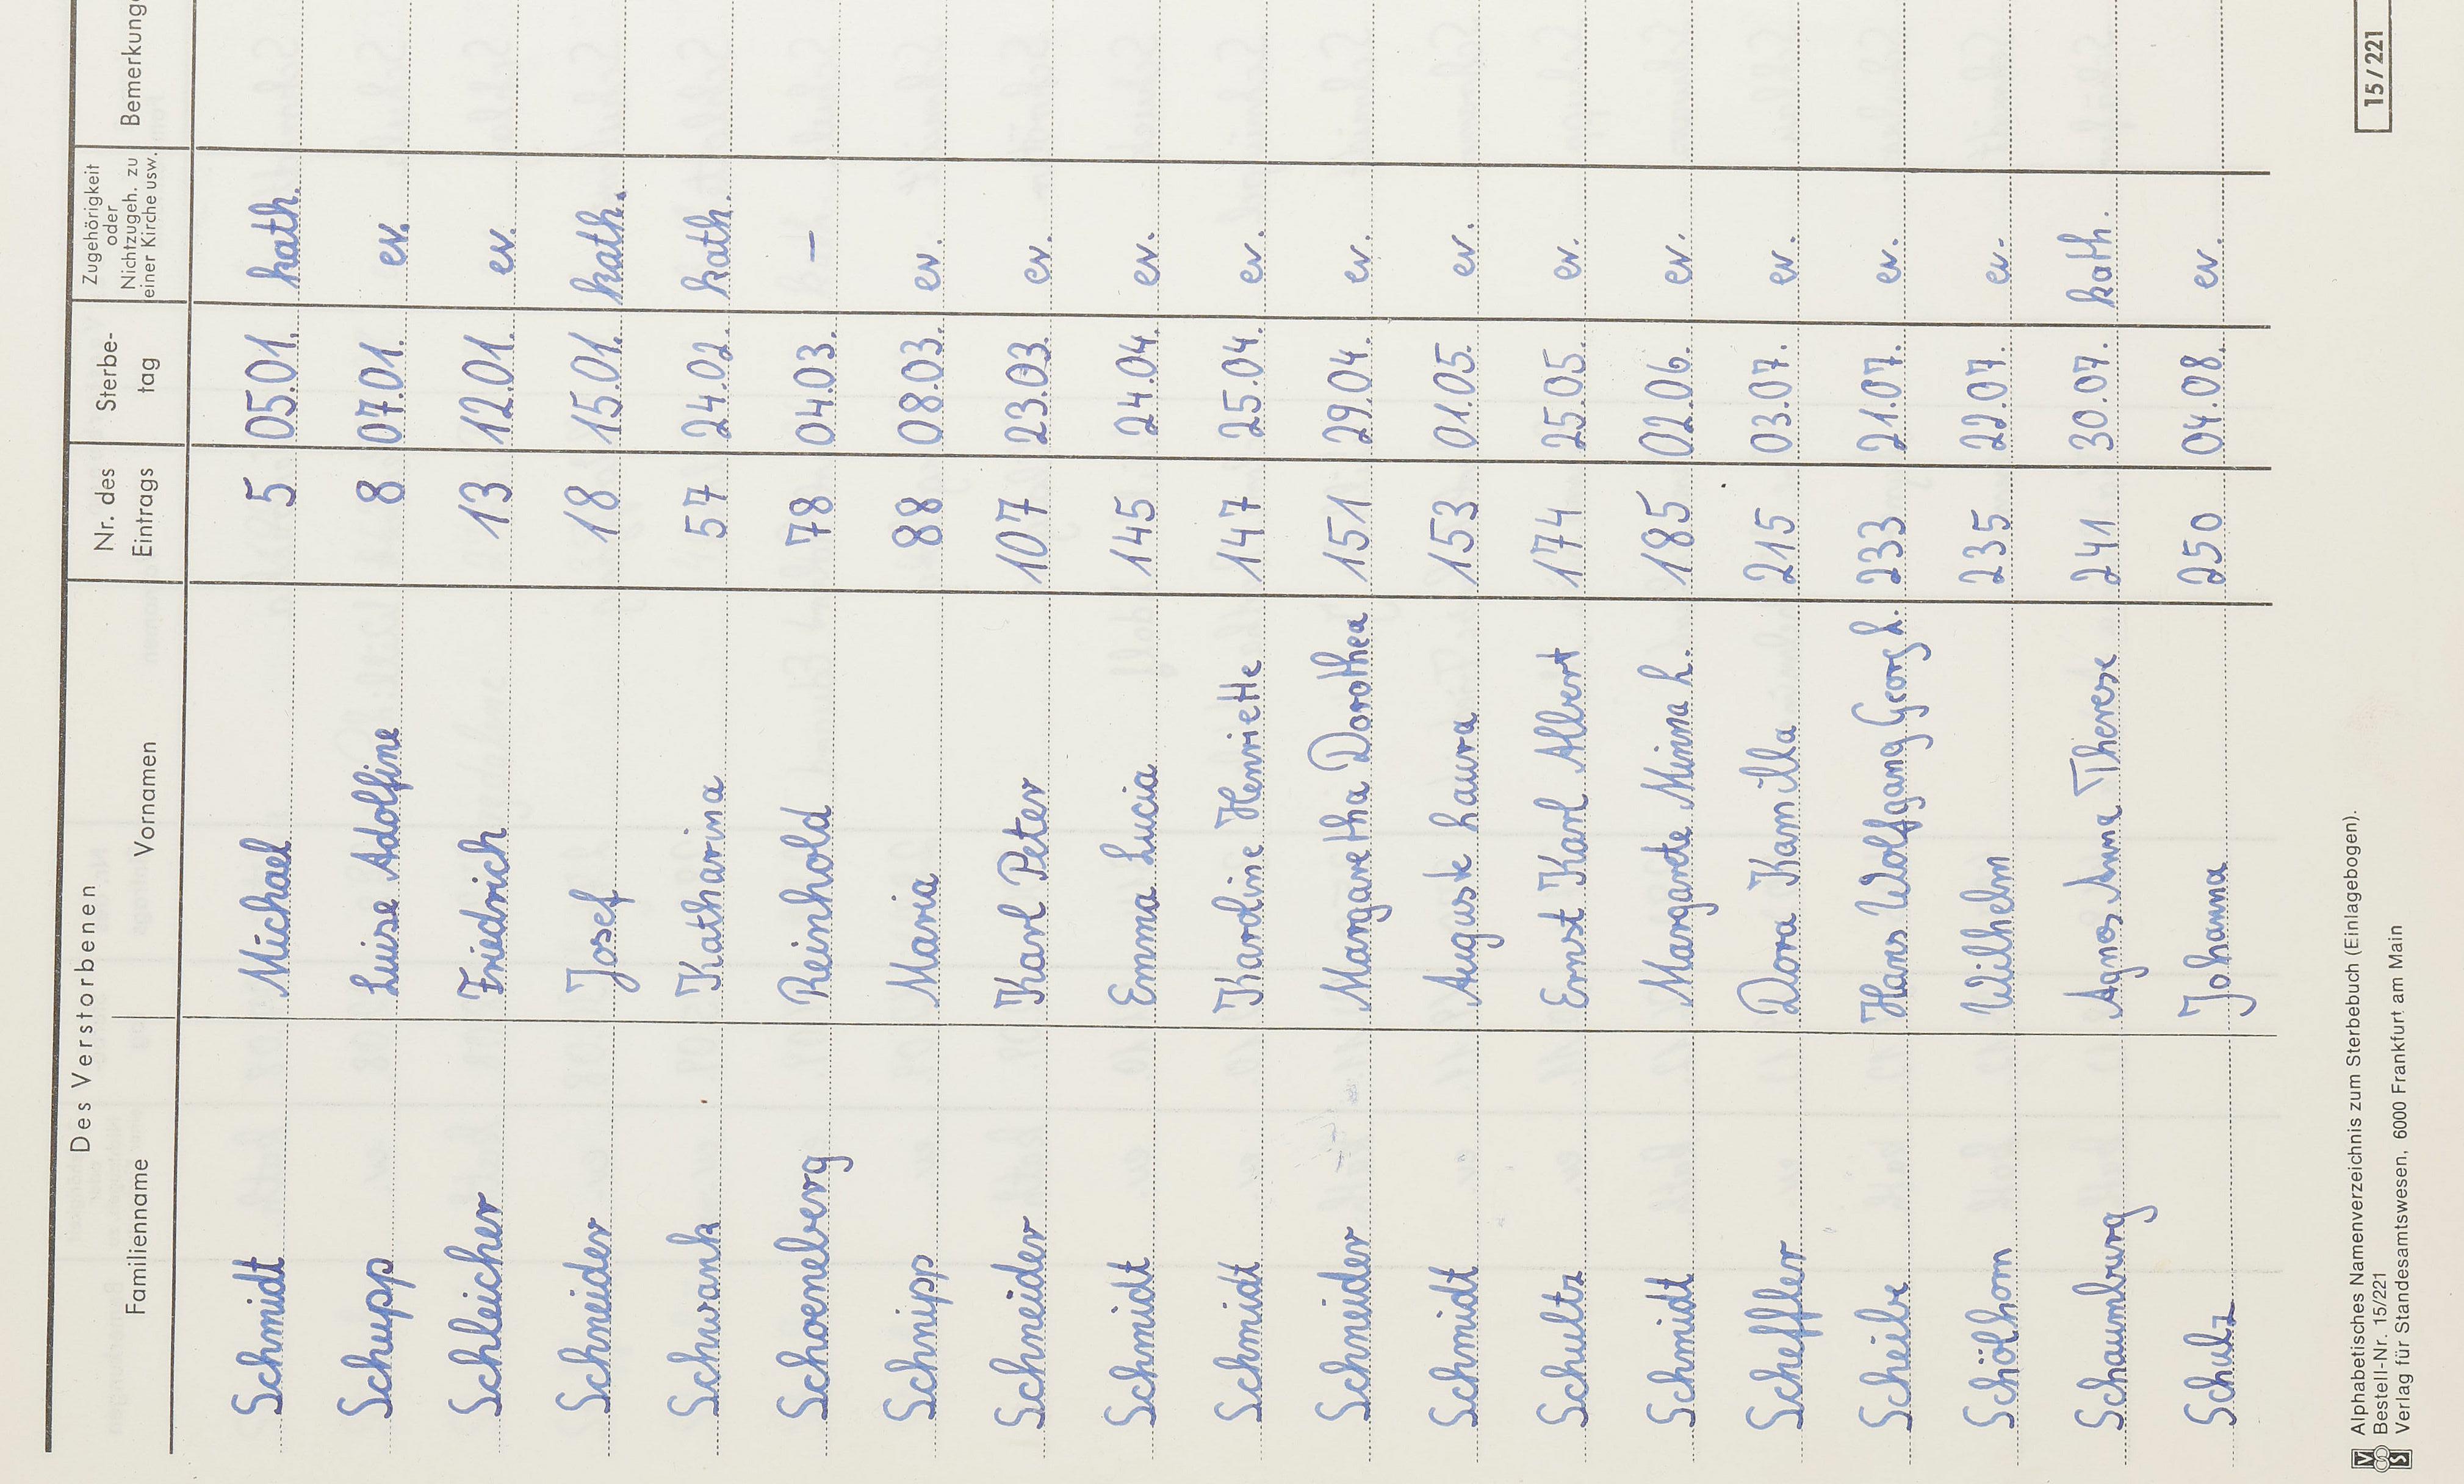 Des Verstorbenen
Familienname Vornamen Nr. des Eintrags Sterbe- tag Zugehörigkeit oder Nichtzugeh. zu einer Kirche usw.
Schmidt Michael 5 05.01. kath.
Schupp Luise Adolfine 8 07.01. ev.
Schleicher Friedrich 13 12.01. ev.
Schneider Josef 18 15.01. kath.
Schwank Katharina 57 24.02. kath.
Schoeneberg Reinhold 78 04.03. —
Schnipp Maria 88 08.03. ev.
Schneider Karl Peter 107 23.03. ev.
Schmidt Emma Lucia 145 24.04. ev.
Schmidt Karoline Henriette 147 25.04. ev.
Schneider Margaretha Dorothea 151 29.04. ev.
Schmidt Auguste Laura 153 01.05. ev.
Schultz Ernst Karl Albert 174 25.05. ev.
Schmidt Margarete Minna L. 185 02.06. ev.
Scheffler Dora Kamilla 215 03.07. ev.
Scheibe Hans Wolfgang Georg L. 233 21.07. ev.
Schölhorn Wilhelm 235 22.07. ev.
Schaumburg Agnes Anna Therese 241 30.07. kath.
Schulz Johanna 250 04.08. ev.
Alphabetisches Namenverzeichnis zum Sterbebuch (Einlagebogen).
Bestell-Nr. 15/221
Verlag für Standesamtswesen, 6000 Frankfurt am Main
15/221